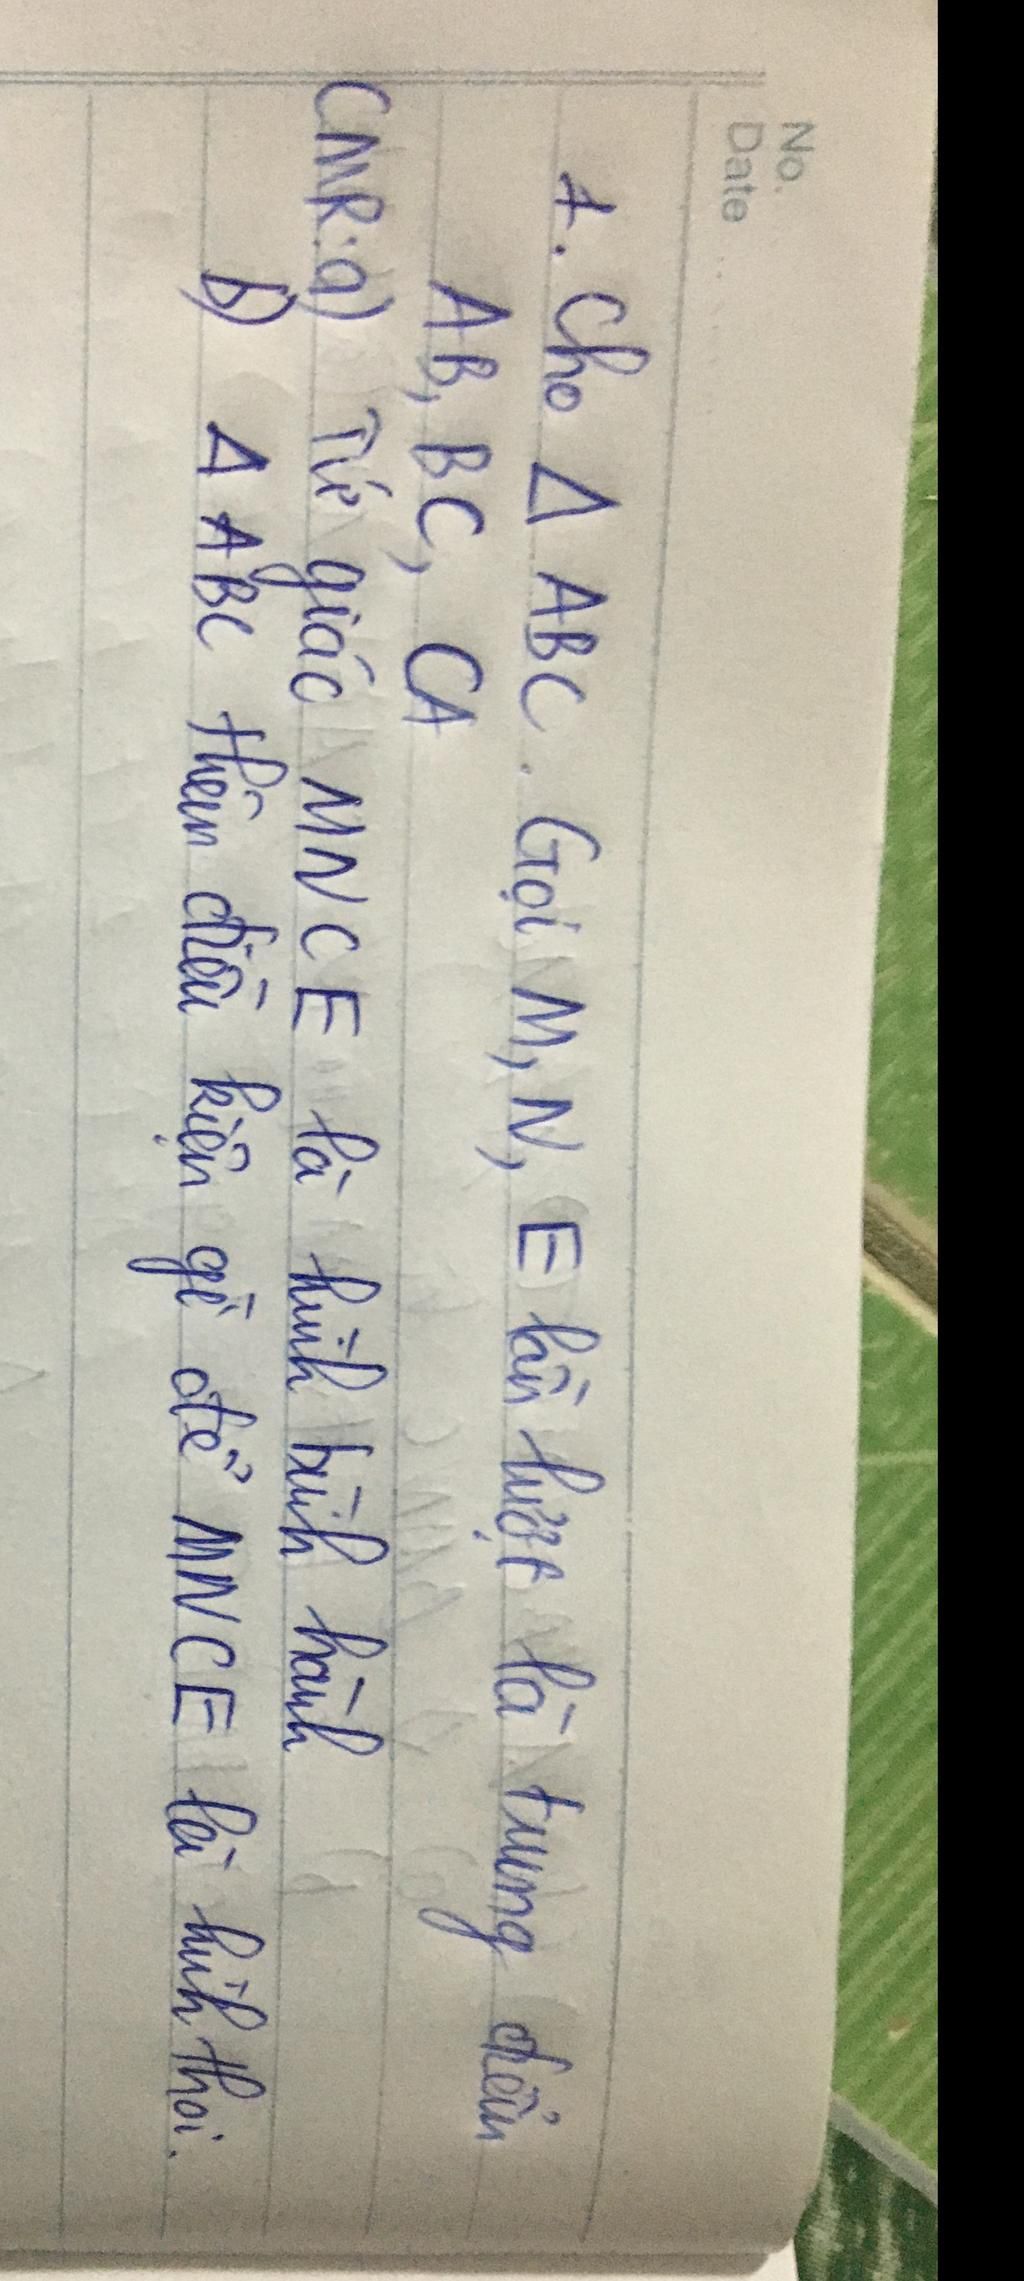 No.
Date
1. Cho Δ ABC. Gọi M, N, E lần lượt là trung điểm
AB, BC, CA
CMR: a) Tứ giác MNCE là hình bình hành
b) Δ ABC thêm điều kiện gì để MNCE là hình thoi.